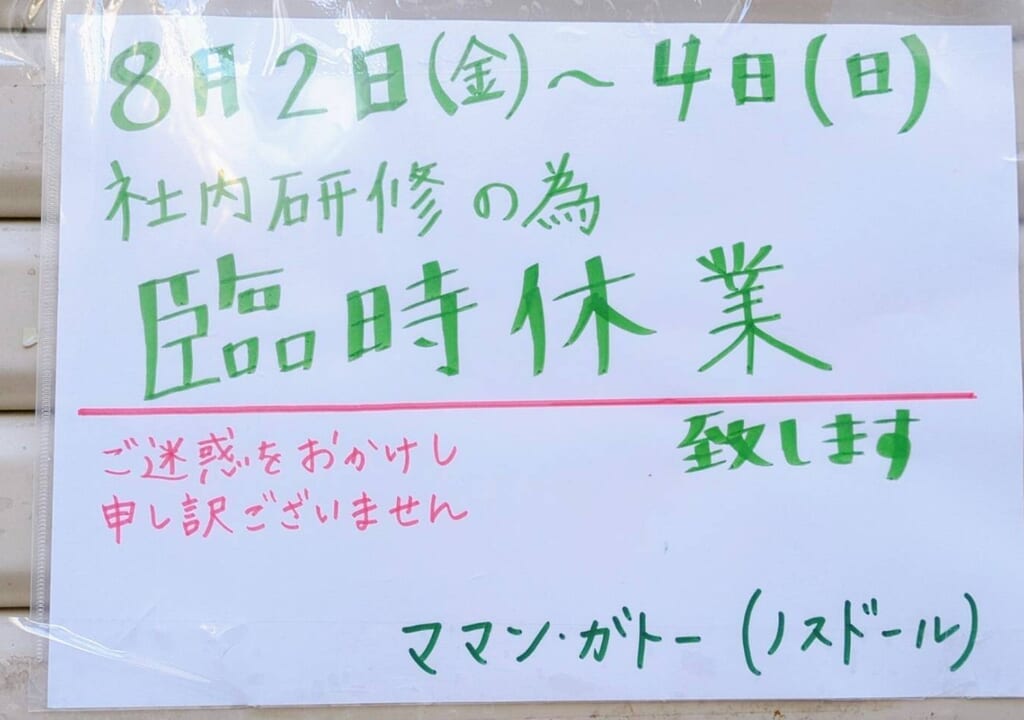 8月2日(金)～4日(日)
社内研修の為
臨時休業
致します
ご迷惑をおかけし
申し訳ございません
ママン・ガトー(ノスドール)